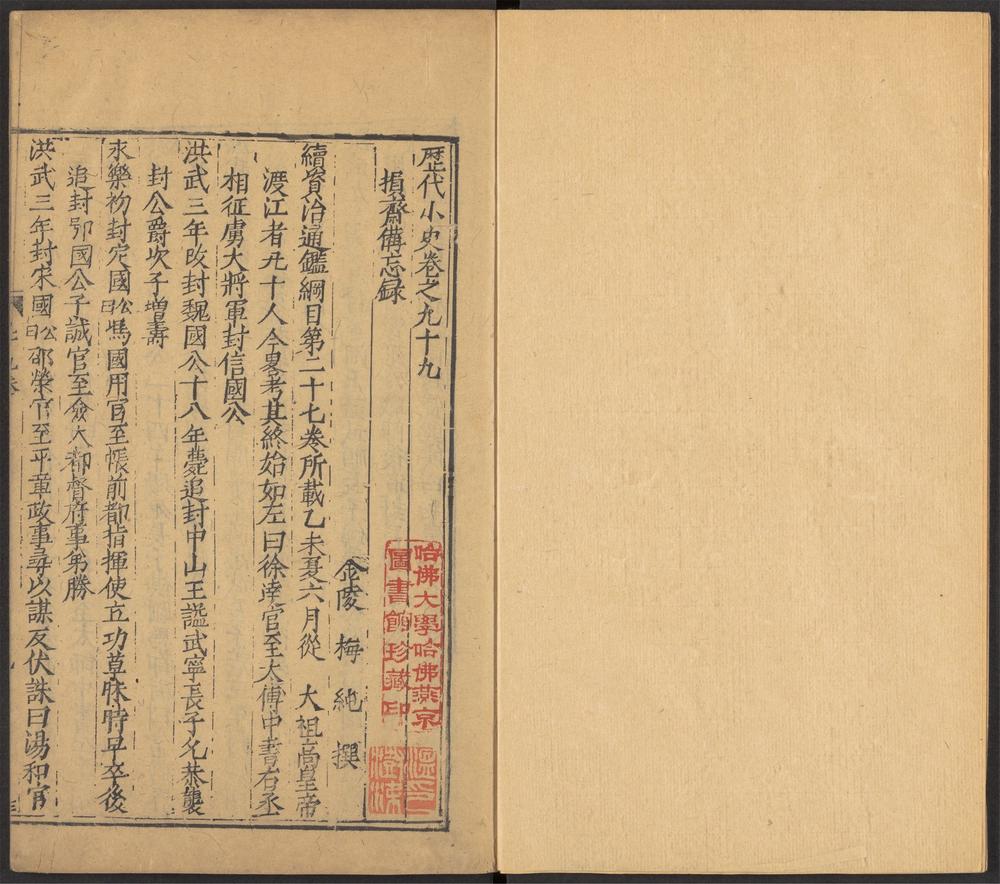 歷代小史卷之九十九
損齋備忘録
金陵 梅 純 撰
續資治通鑑綱目第二十七卷所載乙未夏六月從 大祖高皇帝
渡江者凡十人今畧考其終始如左曰徐達官至太傅中書右丞
相征虜大將軍封信國公
洪武三年改封魏國公十八年薨追封中山王謚武寧長子允恭襲
封公爵次子增壽
永樂初封定國公曰馮國用官至帳前都指揮使立功草昧時早卒後
追封郢國公子誠官至僉大都督府事弟勝
洪武三年封宋國公曰邵榮官至平章政事尋以謀反伏誅曰湯和官
哈佛大學哈佛燕京
圖書館珍藏印